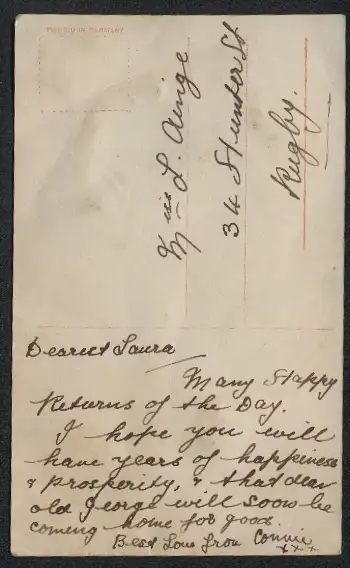 PRINTED IN GERMANY
Miss L. Ainge
34 Hunter St
Rugby.
Dearest Laura
Many Happy
Returns of the Day.
I hope you will
have years of happiness
& prosperity, & that dear
old George will soon be
coming home for good.
Best Love from Connie
xxx